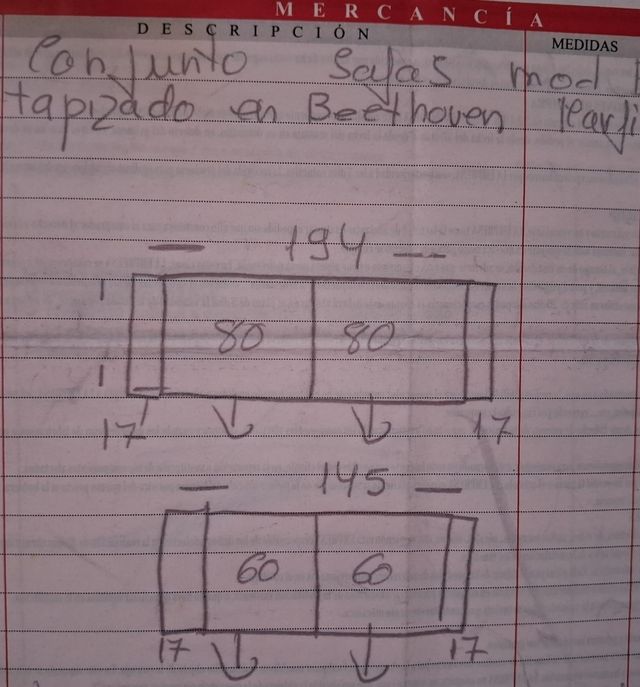 MERCANCÍA
DESCRIPCIÓN MEDIDAS
Conjunto Sofas mod
tapizado en Beethoven
— 194 —
80 80
17 17
— 145 —
60 60
17 17